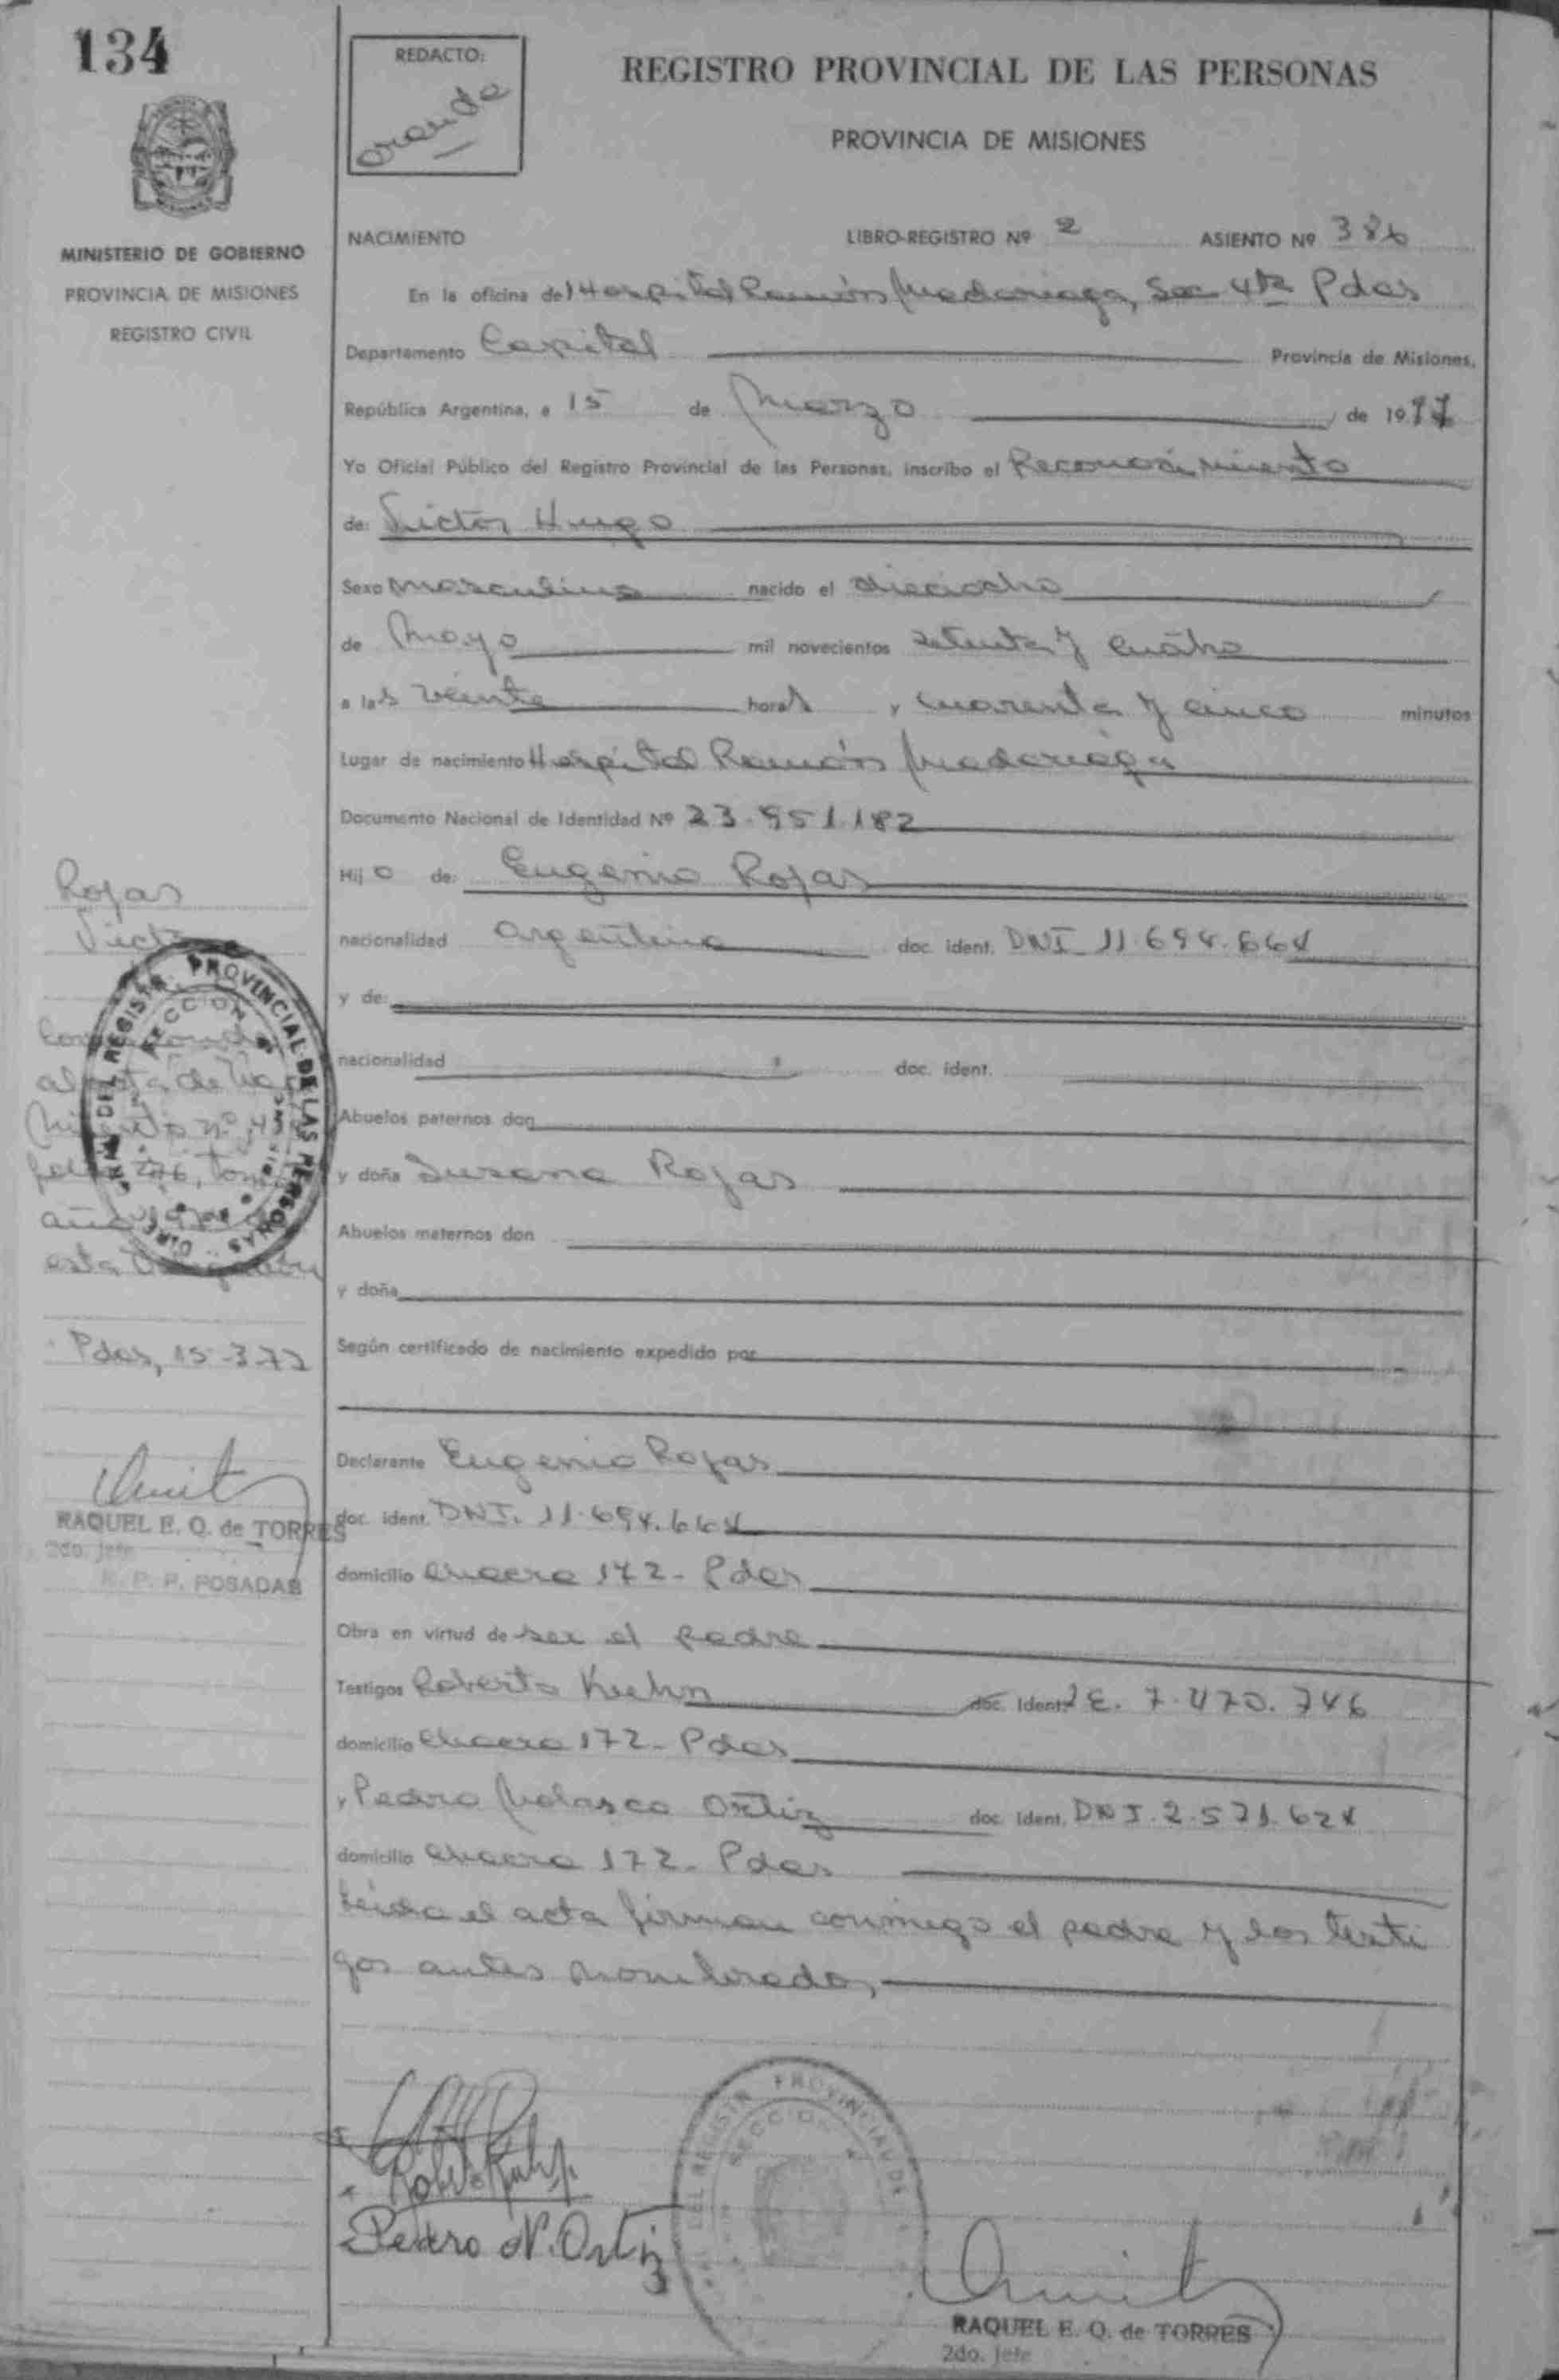 134
REDACTO:
MINISTERIO DE GOBIERNO
PROVINCIA DE MISIONES
REGISTRO CIVIL
REGISTRO PROVINCIAL DE LAS PERSONAS
PROVINCIA DE MISIONES
NACIMIENTO LIBRO-REGISTRO Nº 2 ASIENTO Nº 386
En la oficina del Hospital Ramón Madariaga, Sec 4ta Pdas
Departamento Capital Provincia de Misiones,
República Argentina, a 15 de Marzo de 1977
Yo Oficial Público del Registro Provincial de las Personas, inscribo el Reconocimiento
de: Victor Hugo
Sexo masculino nacido el dieciocho
de Mayo mil novecientos setenta y cuatro
a las veinte horas y cuarenta y cinco minutos
Lugar de nacimiento Hospital Ramón Madariaga
Documento Nacional de Identidad Nº 23.951.182
Hijo de: Eugenio Rojas
nacionalidad argentina doc. ident. DNI 11.694.664
y de:
nacionalidad doc. ident.
Abuelos paternos don
y doña Susana Rojas
Abuelos maternos don
y doña
Según certificado de nacimiento expedido por
Declarante Eugenio Rojas
doc. ident. DNI. 11.694.664
domicilio chacra 172- Pdas
Obra en virtud de ser el padre
Testigos Roberto Kuhn doc. Ident. LE. 7.470.746
domicilio chacra 172- Pdas
y Pedro Nolasco Ortiz doc. Ident. DNI. 2.571.624
domicilio chacra 172- Pdas
Leida el acta firman conmigo el padre y los testi
gos antes nombrados,
Pedro N. Ortiz
RAQUEL E. Q. de TORRES
2do. Jefe
Rojas
Victor
al acta de Na
cimiento nº
folio 276, tomo
año
esta
Pdas, 15-3-77
RAQUEL E. Q. de TORRES
2do. Jefe
R. P. P. POSADAS
DEL REGISTR. PROVINCIAL DE LAS PERSONAS
SECCION
DEL REGISTR. PROVINCIAL DE
SECCION